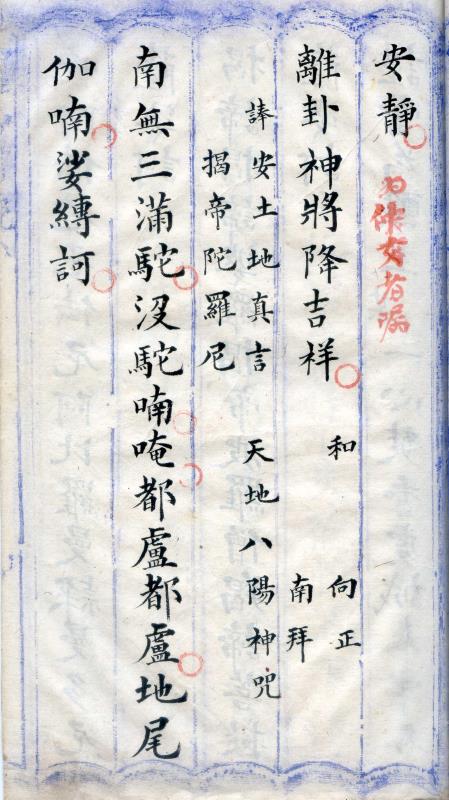 安靜
離卦神將降吉祥 和 向正
南拜
安土地真言 天地八陽神咒
揭帝陀羅尼
南無三滿駝沒駝喃唵都盧都盧地尾
伽喃娑縛訶